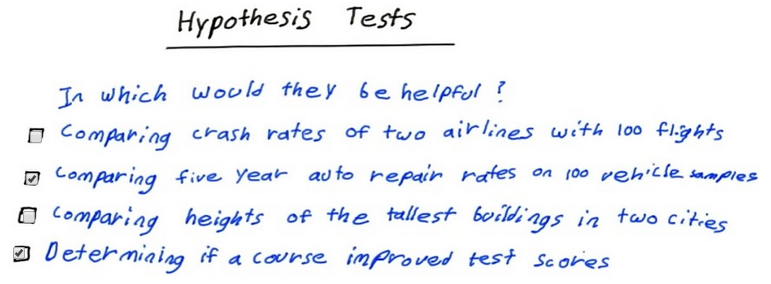 Hypothesis Tests
In which would they be helpful?
Comparing crash rates of two airlines with 100 flights
Comparing five year auto repair rates on 100 vehicle samples
Comparing heights of the tallest buildings in two cities
Determining if a course improved test scores